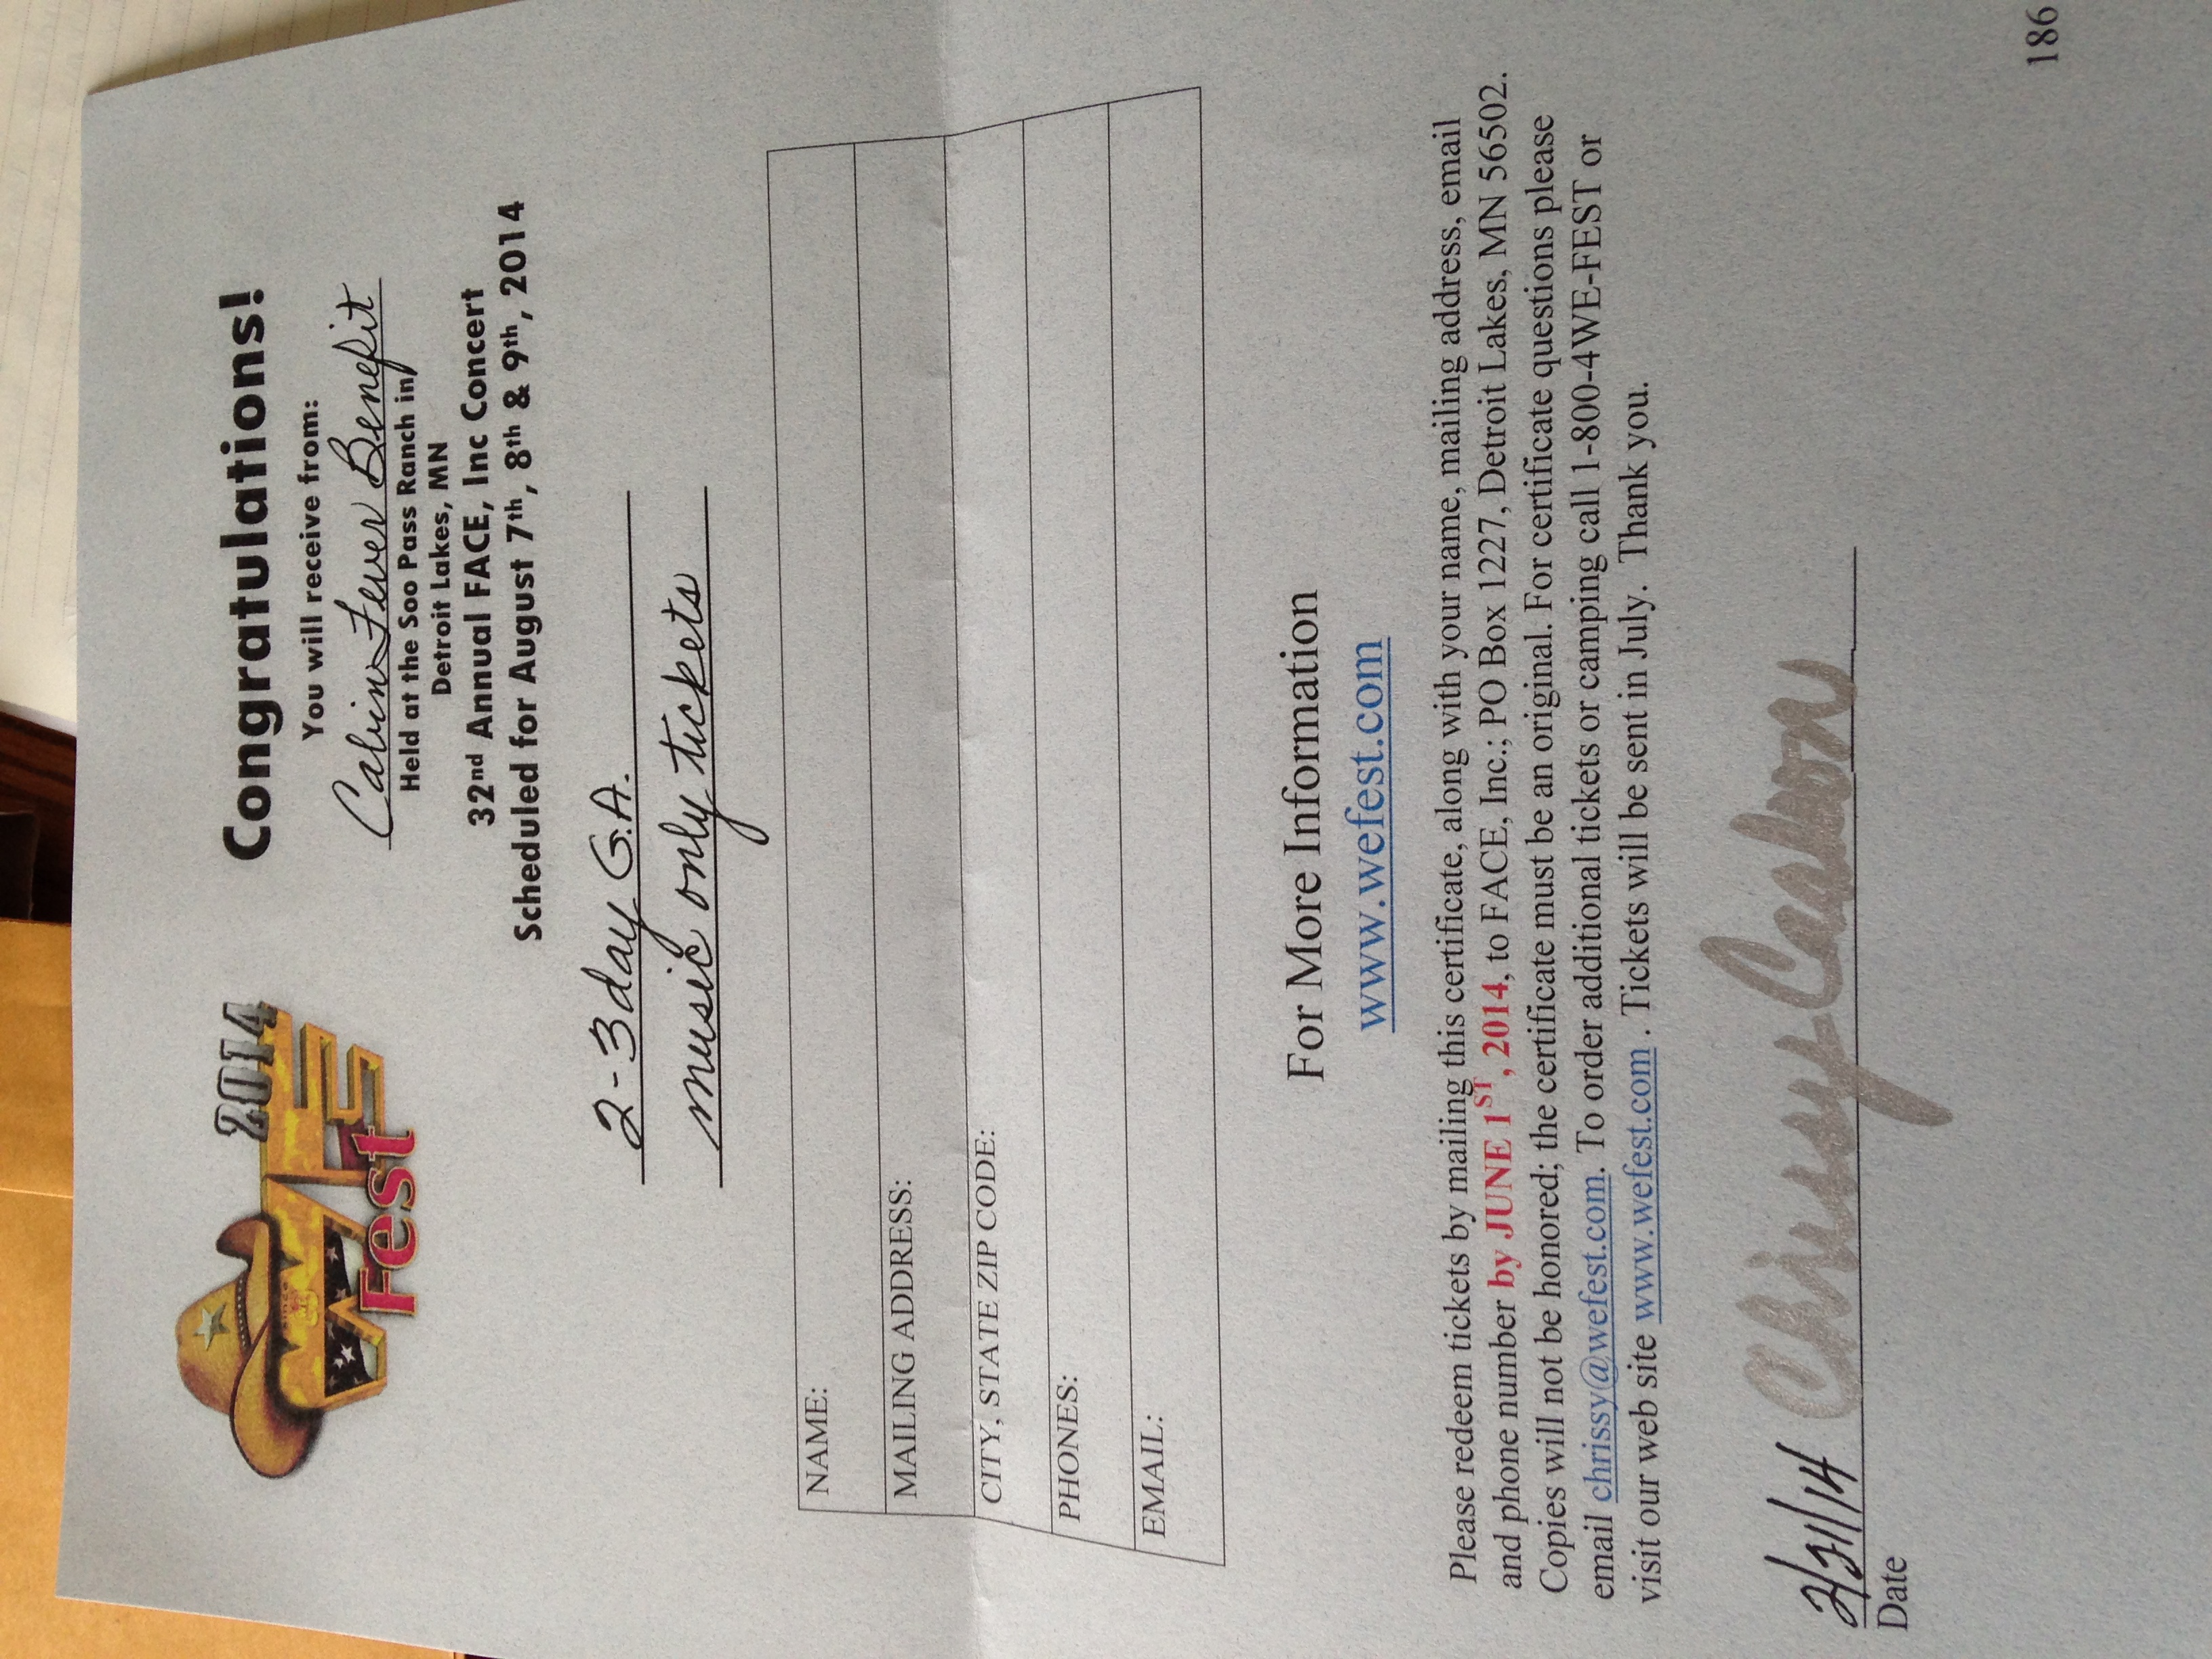 2014
since
WE
Fest
Congratulations!
You will receive from:
Cabin Fever Benefit
Held at the Soo Pass Ranch in
Detroit Lakes, MN
32nd Annual FACE, Inc Concert
Scheduled for August 7th, 8th & 9th, 2014
2-3day G.A.
music only tickets
NAME:
MAILING ADDRESS:
CITY, STATE ZIP CODE:
PHONES:
EMAIL:
For More Information
www.wefest.com
Please redeem tickets by mailing this certificate, along with your name, mailing address, email
and phone number by JUNE 1ST, 2014, to FACE, Inc.; PO Box 1227, Detroit Lakes, MN 56502.
Copies will not be honored; the certificate must be an original. For certificate questions please
email chrissy@wefest.com. To order additional tickets or camping call 1-800-4WE-FEST or
visit our web site www.wefest.com . Tickets will be sent in July. Thank you.
2/21/14 Chrissy
Date
186